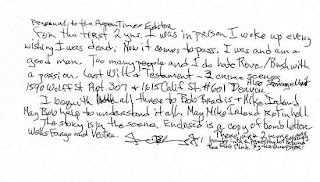 Personal to the Aspen Times Editor
For the first 2 yrs. I was in prison I woke up every
wishing I was dead. Now it comes to pass. I was and am a
good man. Too many people and I do hate Rove/Bush with
a passion. Last Will & Testament - 3 crime scenes
1590 Wolff St Apt 307 & 1615 Calif St #601 Denver Also Storage Unit
I begin with all three to Bob Braudis + Mike Ireland
May Bob help to understand it all. May Mike Ireland rot in hell
The story is in the scene. Enclosed is a copy of bomb letter
Wells Fargo and Vectra.